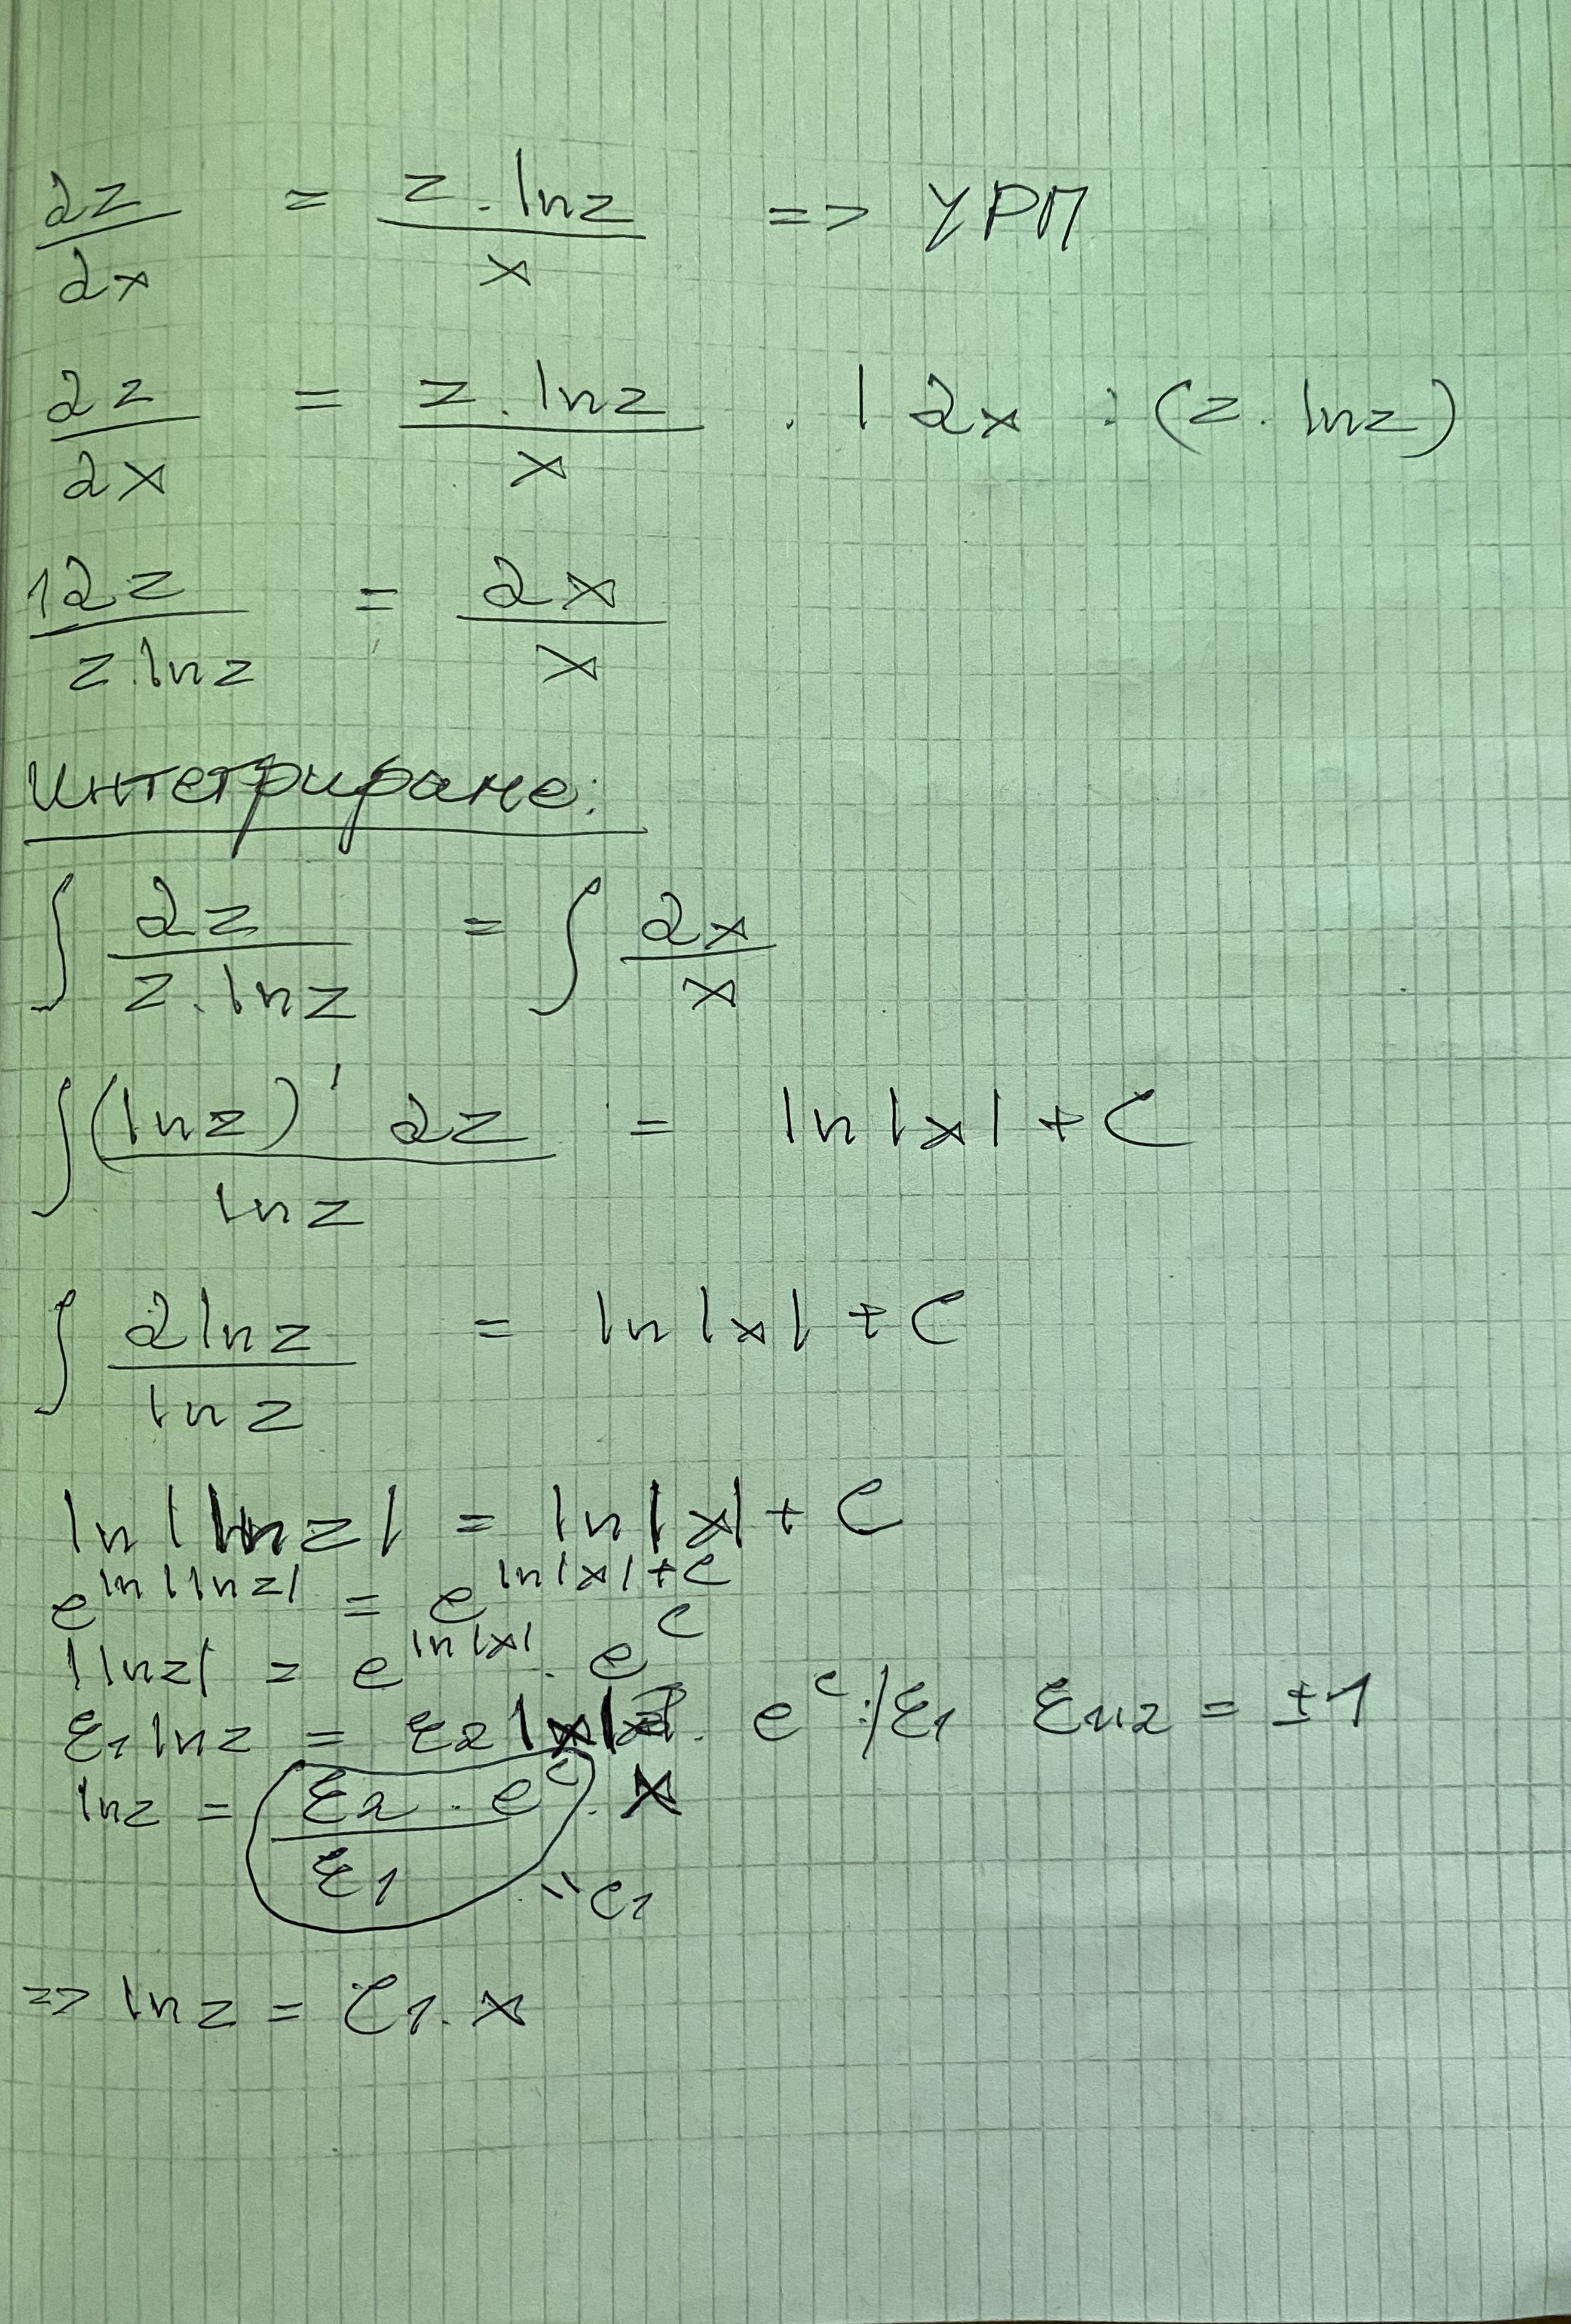 dz/dx = z.lnz/x => УРП
dz/dx = z.lnz/x . | dx : (z. lnz)
1dz/z.lnz = dx/x
Интегриране:
∫ dz/z.lnz = ∫ dx/x
∫ (lnz)' dz/lnz = ln|x| + C
∫ dlnz/lnz = ln|x| + C
ln|lnz| = ln|x| + C
e^ln|lnz| = e^ln|x|+C
|lnz| = e^ln|x| . e^C
ε1 lnz = ε2 x . e^C :/ε1 ε1и2 = ±1
lnz = ε2 . e^C/ε1 . x
= C1
=> lnz = C1.x